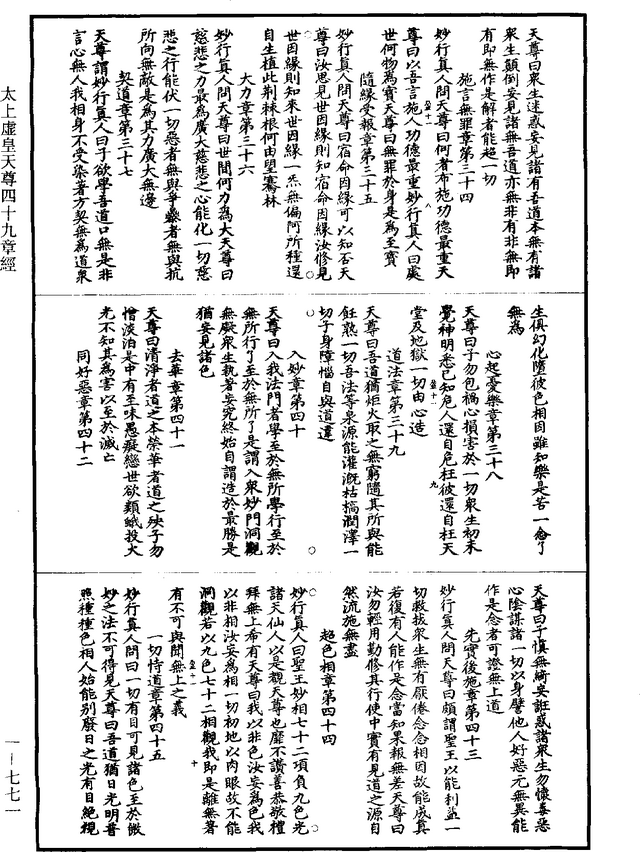 天尊曰衆生迷惑妄見諸有吾道本無有諸
衆生顛倒妄見諸無吾道亦無非有非無即
有即無作是解者能超一切
施言無罪章第三十四
妙行真人問天尊曰何者布施功德最重天
尊曰以吾言施人功德最重妙行真人曰處
世何物為寶天尊曰無罪於身是為至寶
隨緣受報章第三十五
妙行真人問天尊曰宿命因緣可以知否天
尊曰汝思見世因緣則知宿命因緣汝修見
世因緣則知來世因緣一炁無偏阿所種還
自生植此荆棘根何由望騫林
大力章第三十六
妙行真人問天尊曰世間何力為大天尊曰
慈悲之力最為廣大慈悲之心能化一切慈
悲之行能伏一切惡者無與爭釁者無與抗
所向無敵是為其力廣大無邊
契道章第三十七
天尊謂妙行真人曰子欲學吾道口無是非
言心無人我相身不受染著方契無為道衆
生俱幻化墮彼色相因雖知樂是苦一念了
無為
心起憂樂章第三十八
天尊曰子勿包禍心損害於一切衆生初未
覺神明悉已知危人還自危枉彼還自枉天
堂及地獄一切由心造
道法章第三十九
天尊曰吾道猶炬火取之無窮隨其所與能
飪熟一切吾法等泉源能灌溉枯槁潤澤一
切子身障惱自與道違
入妙章第四十
天尊曰入我法門者學至於無所學行至於
無所行了至於無所了是謂入衆妙門洞觀
無礙衆生執著妄究終始自謂造於最勝是
猶妄見諸色
去華章第四十一
天尊曰清淨者道之本榮華者道之殃子勿
憎淡泊是中有至味愚癡戀世欲類蛾投火
光不知其為害以至於滅亡
同好惡章第四十二
天尊曰子慎無綺妄誑惑諸衆生勿懷毒惡
心陰謀諸一切以身譬他人好惡元無異能
作是念者可證無上道
先實後施章第四十三
妙行真人問天尊曰頗謂聖王以能利益一
切救拔衆生無有厭倦念念相因故能成真
若復有人能作是念當知果報無差天尊曰
汝勿輕用勤修其行使中實有見道之源自
然流施無盡
超色相章第四十四
妙行真人曰聖王妙相七十二項負九色光
諸天仙人以是觀天尊也靡不讚善恭敬禮
拜無上希有天尊曰我以非色汝妄為色我
以非相汝妄為相一切初地以肉眼故不能
洞觀若以九色七十二相觀我即是離無著
有不可與聞無上之義
一切恃道章第四十五
妙行真人問曰一切有目可見諸色至於微
妙之法不可得見天尊曰吾道猶日光明普
照種種色相人始能別廢日之光有目絶視
太上虛皇天尊四十九章經
一—七七一